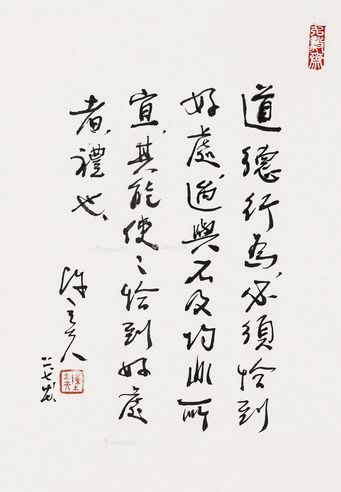 道德行為必須恰到
好處過與不及均非所
宜其能使之恰到好處
者禮也
陳立夫
九七歲